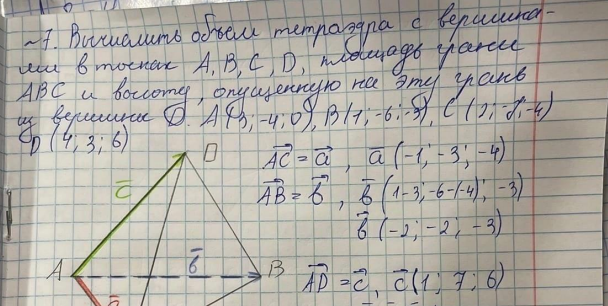 ~7. Вычислить объем тетраэдра с вершина-
ми в точках A, B, C, D, площадь грани
ABC и высоту, опущенную на эту грань
из вершины D. A(3; -4; 0), B(1; -6; -3), C(2; -7; -4)
D(4; 3; 6)
D
AC = a, a(-1; -3; -4)
c
AB = b, b(1-3; -6-(-4); -3)
b(-2; -2; -3)
A b B
AD = c, c(1; 7; 6)
a